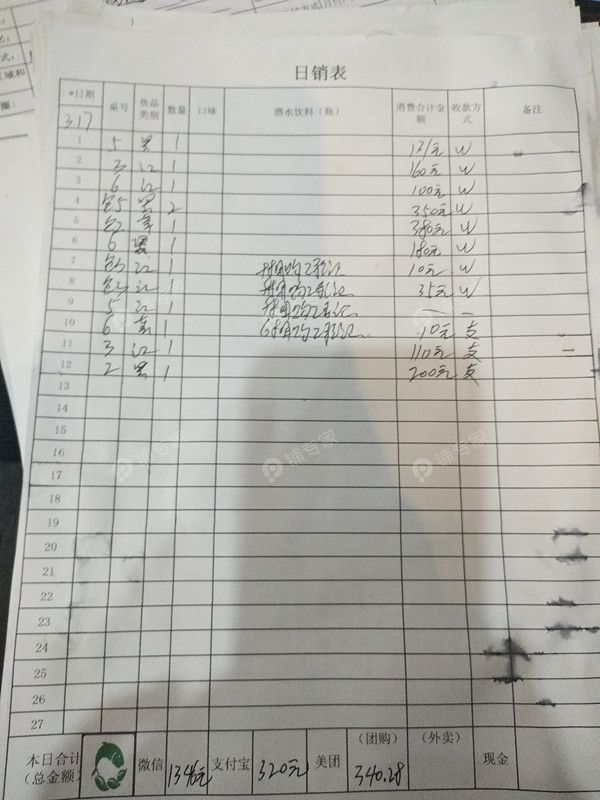 日销表
*日期 桌号 鱼品类别 数量 口味 酒水饮料（瓶） 消费合计金额 收款方式 备注
317
1 5 黑 1 121元 W
2 3 江 1 160元 W
3 6 江 1 100元 W
4 包5 黑 2 350元 W
5 包2 1 380元 W
6 6 黑 1 180元 W
7 江 1 10元 W
8 江 1 35元 W
9 5 江 1 — —
10 6 1 10元 支
11 3 江 1 110元 支
12 2 黑 1 200元 支
13
14
15
16
17
18
19
20
21
22
23
24
25
26
27
本日合计（总金额） 微信 1346元 支付宝 320元 美团 （团购） 340.28 （外卖） 现金
铺专家
铺专家
铺专家